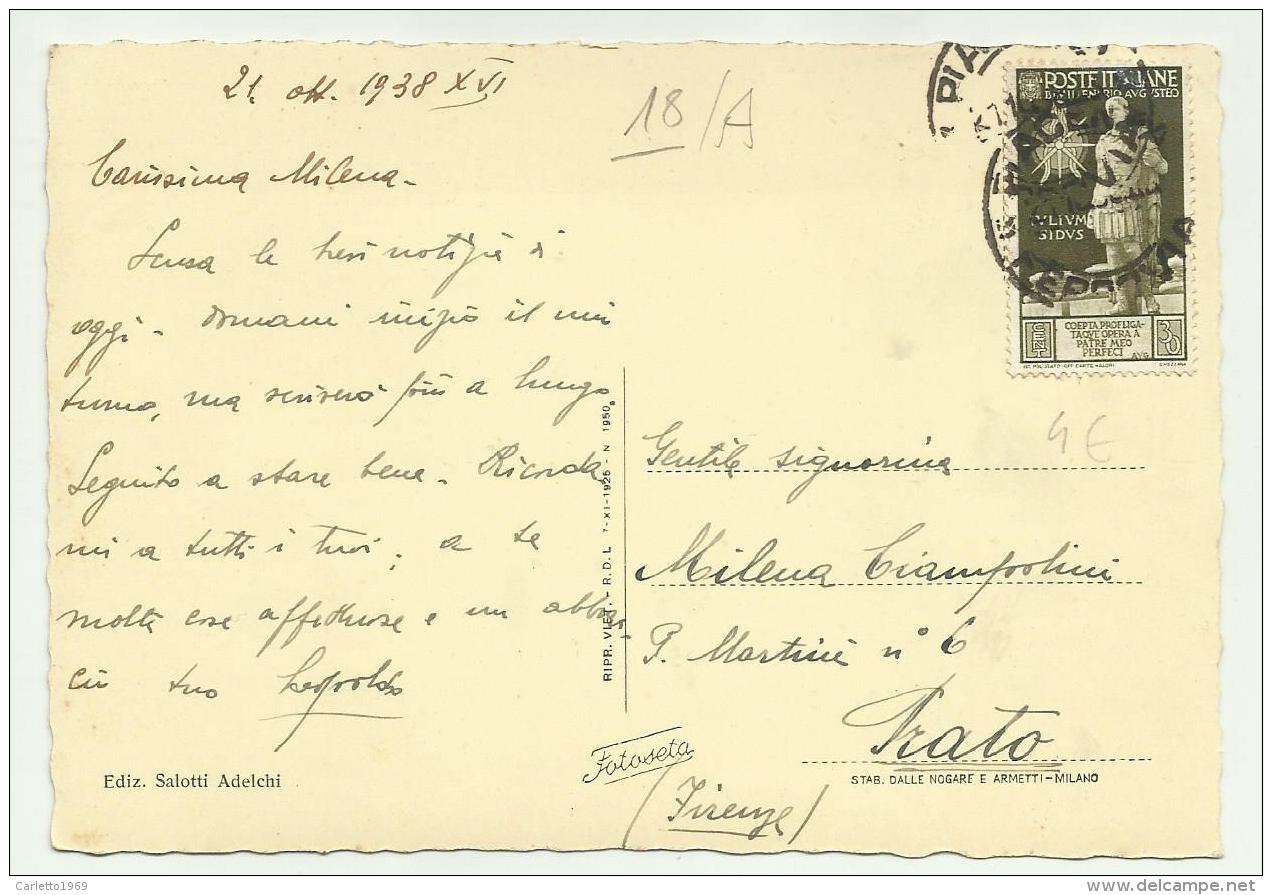 21. ott. 1938 XVI
18/A
Carissima Milena -
Senza le tue notizie di
oggi - domani inizio il mio
turno, ma scriverò più a lungo
Seguito a stare bene - Ricorda
mi a tutti i tuoi; a te
molte cose affettuose e un abbrac
cio tuo Leopoldo
Ediz. Salotti Adelchi
RIPR. VIET. - R.D.L 7-XI-1925 - N 1950
Fotoseta
POSTE ITALIANE
BIMILLENARIO AVGVSTEO
IVLIVM
SIDVS
COEPTA PROFLIGA-
TAQVE OPERA A
PATRE MEO
PERFECI AVG
CENT 30
IST. POL. STATO-OFF. CARTE VALORI C. MEZZANA
4 €
Gentile signorina
Milena Ciampolini
P. Martini n° 6
Prato
STAB. DALLE NOGARE E ARMETTI-MILANO
(Firenze)
Carletto1969
delcampe.net